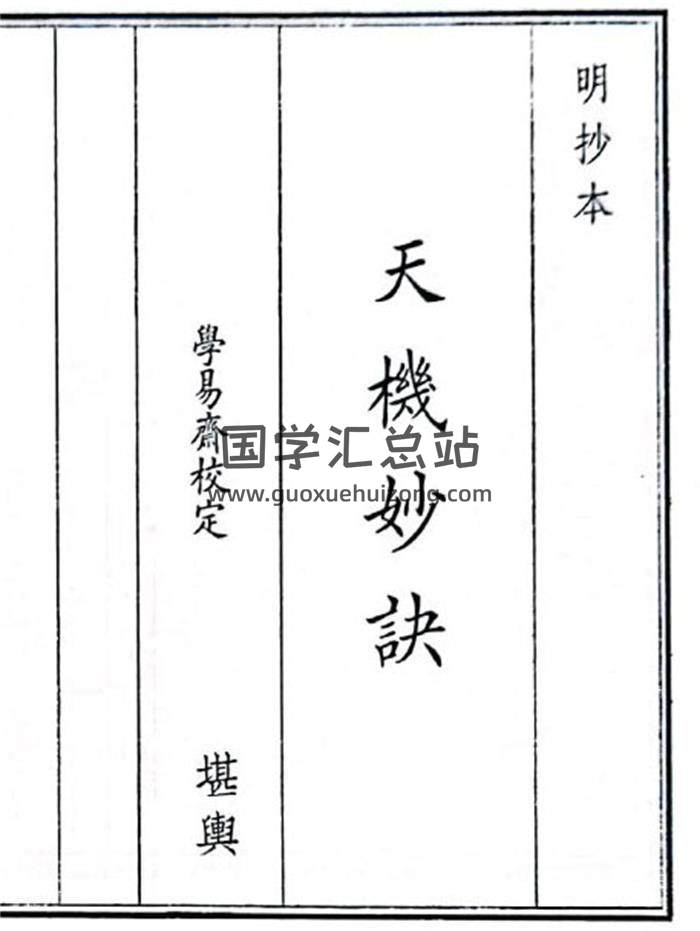 明抄本
天機妙訣
學易齋校定
堪輿
国学汇总站
www.guoxuehuizong.com